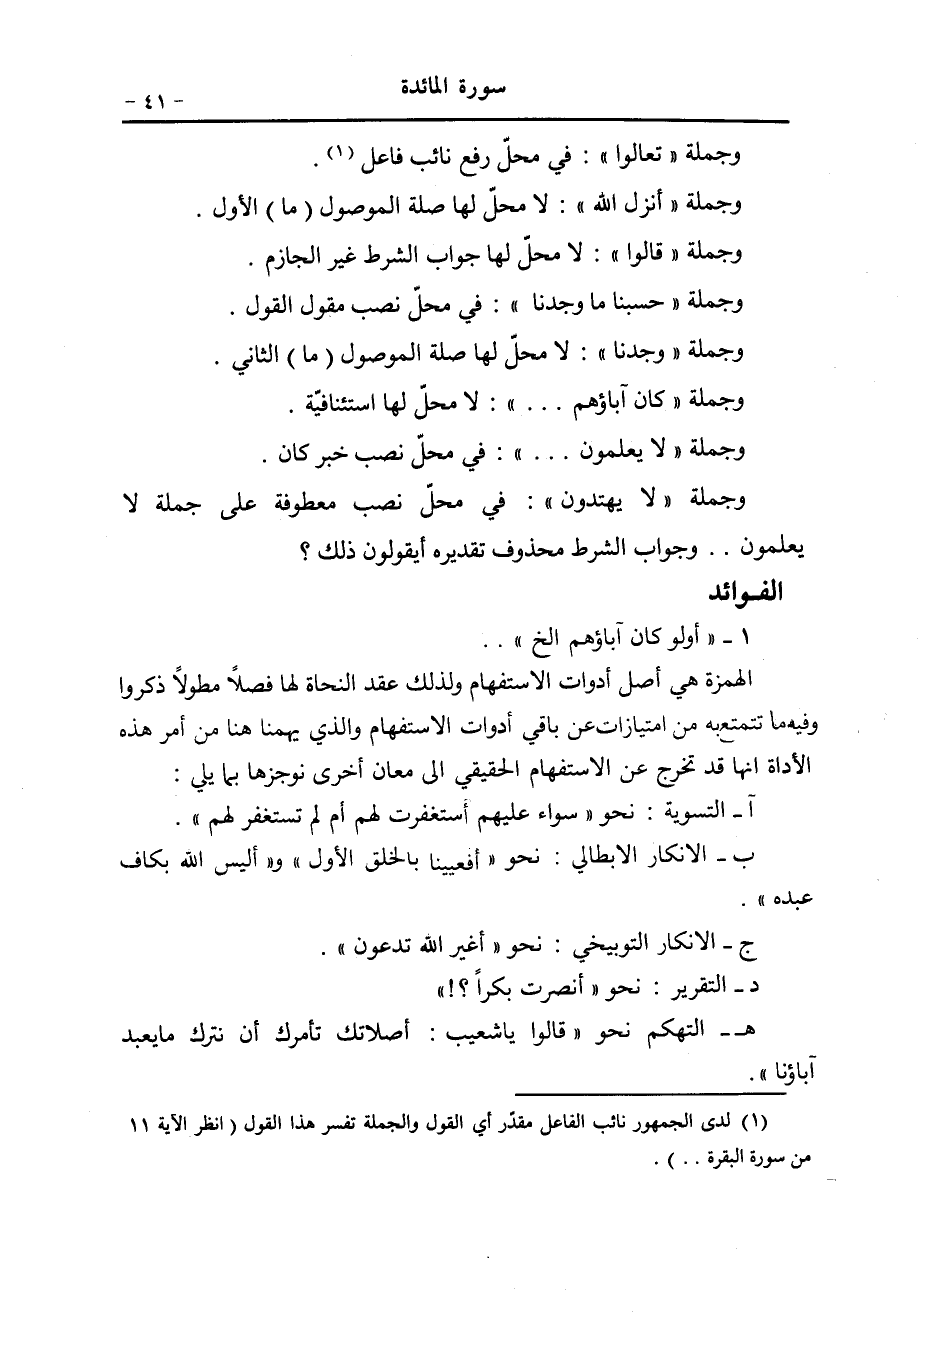 سورة المائدة
- ٤١ -
وجملة « تعالوا » : في محلّ رفع نائب فاعل (١) .
وجملة « أنزل الله » : لا محلّ لها صلة الموصول ( ما ) الأول .
وجملة « قالوا » : لا محلّ لها جواب الشرط غير الجازم .
وجملة « حسبنا ما وجدنا » : في محلّ نصب مقول القول .
وجملة « وجدنا » : لا محلّ لها صلة الموصول ( ما ) الثاني .
وجملة « كان آباؤهم . . . » : لا محلّ لها استئنافيّة .
وجملة « لا يعلمون . . . » : في محلّ نصب خبر كان .
وجملة « لا يهتدون » : في محلّ نصب معطوفة على جملة لا
يعلمون . . وجواب الشرط محذوف تقديره أيقولون ذلك ؟
الفـوائد
١ ـ « أولو كان آباؤهم الخ » . .
الهمزة هي أصل أدوات الاستفهام ولذلك عقد النحاة لها فصلاً مطولاً ذكروا
وفيه ما تتمتع به من امتيازات عن باقي أدوات الاستفهام والذي يهمنا هنا من أمر هذه
الأداة انها قد تخرج عن الاستفهام الحقيقي الى معان أخرى نوجزها بما يلي :
آ ـ التسوية : نحو « سواء عليهم أستغفرت لهم أم لم تستغفر لهم » .
ب ـ الانكار الابطالي : نحو « أفعيينا بالخلق الأول » و« أليس الله بكاف
عبده » .
ج ـ الانكار التوبيخي : نحو « أغير الله تدعون » .
د ـ التقرير : نحو « أنصرت بكراً ؟!»
هـ ـ التهكم نحو « قالوا ياشعيب : أصلاتك تأمرك أن نترك مايعبد
آباؤنا » .
(١) لدى الجمهور نائب الفاعل مقدّر أي القول والجملة تفسر هذا القول ( انظر الآية ١١
من سورة البقرة . . ) .